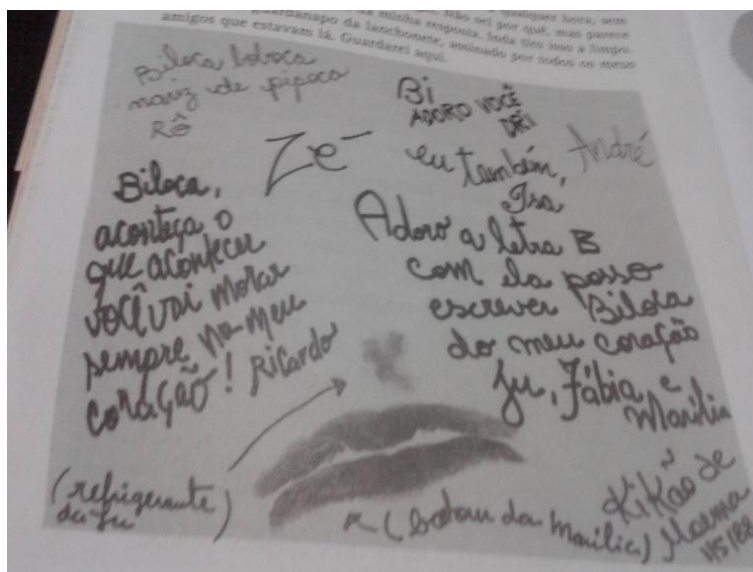 qualquer hora, sem
guardanapo da lanchonete, assinado por todos os meus
amigos que estavam lá. Guardarei aqui.
Biloca loboca
nariz de pipoca
Rô
Zé
Bi
ADORO VOCÊ
DRI
eu também,
Isa
André
Biloca,
aconteça o
que acontecer
você vai morar
sempre no meu
coração! Ricardo
Adoro a letra B
com ela posso
escrever Biloca
do meu coração
Ju, Fábia e
Marilia
(refrigerante
da Ju)
(batom da Marilia)
Kikão de
Moema